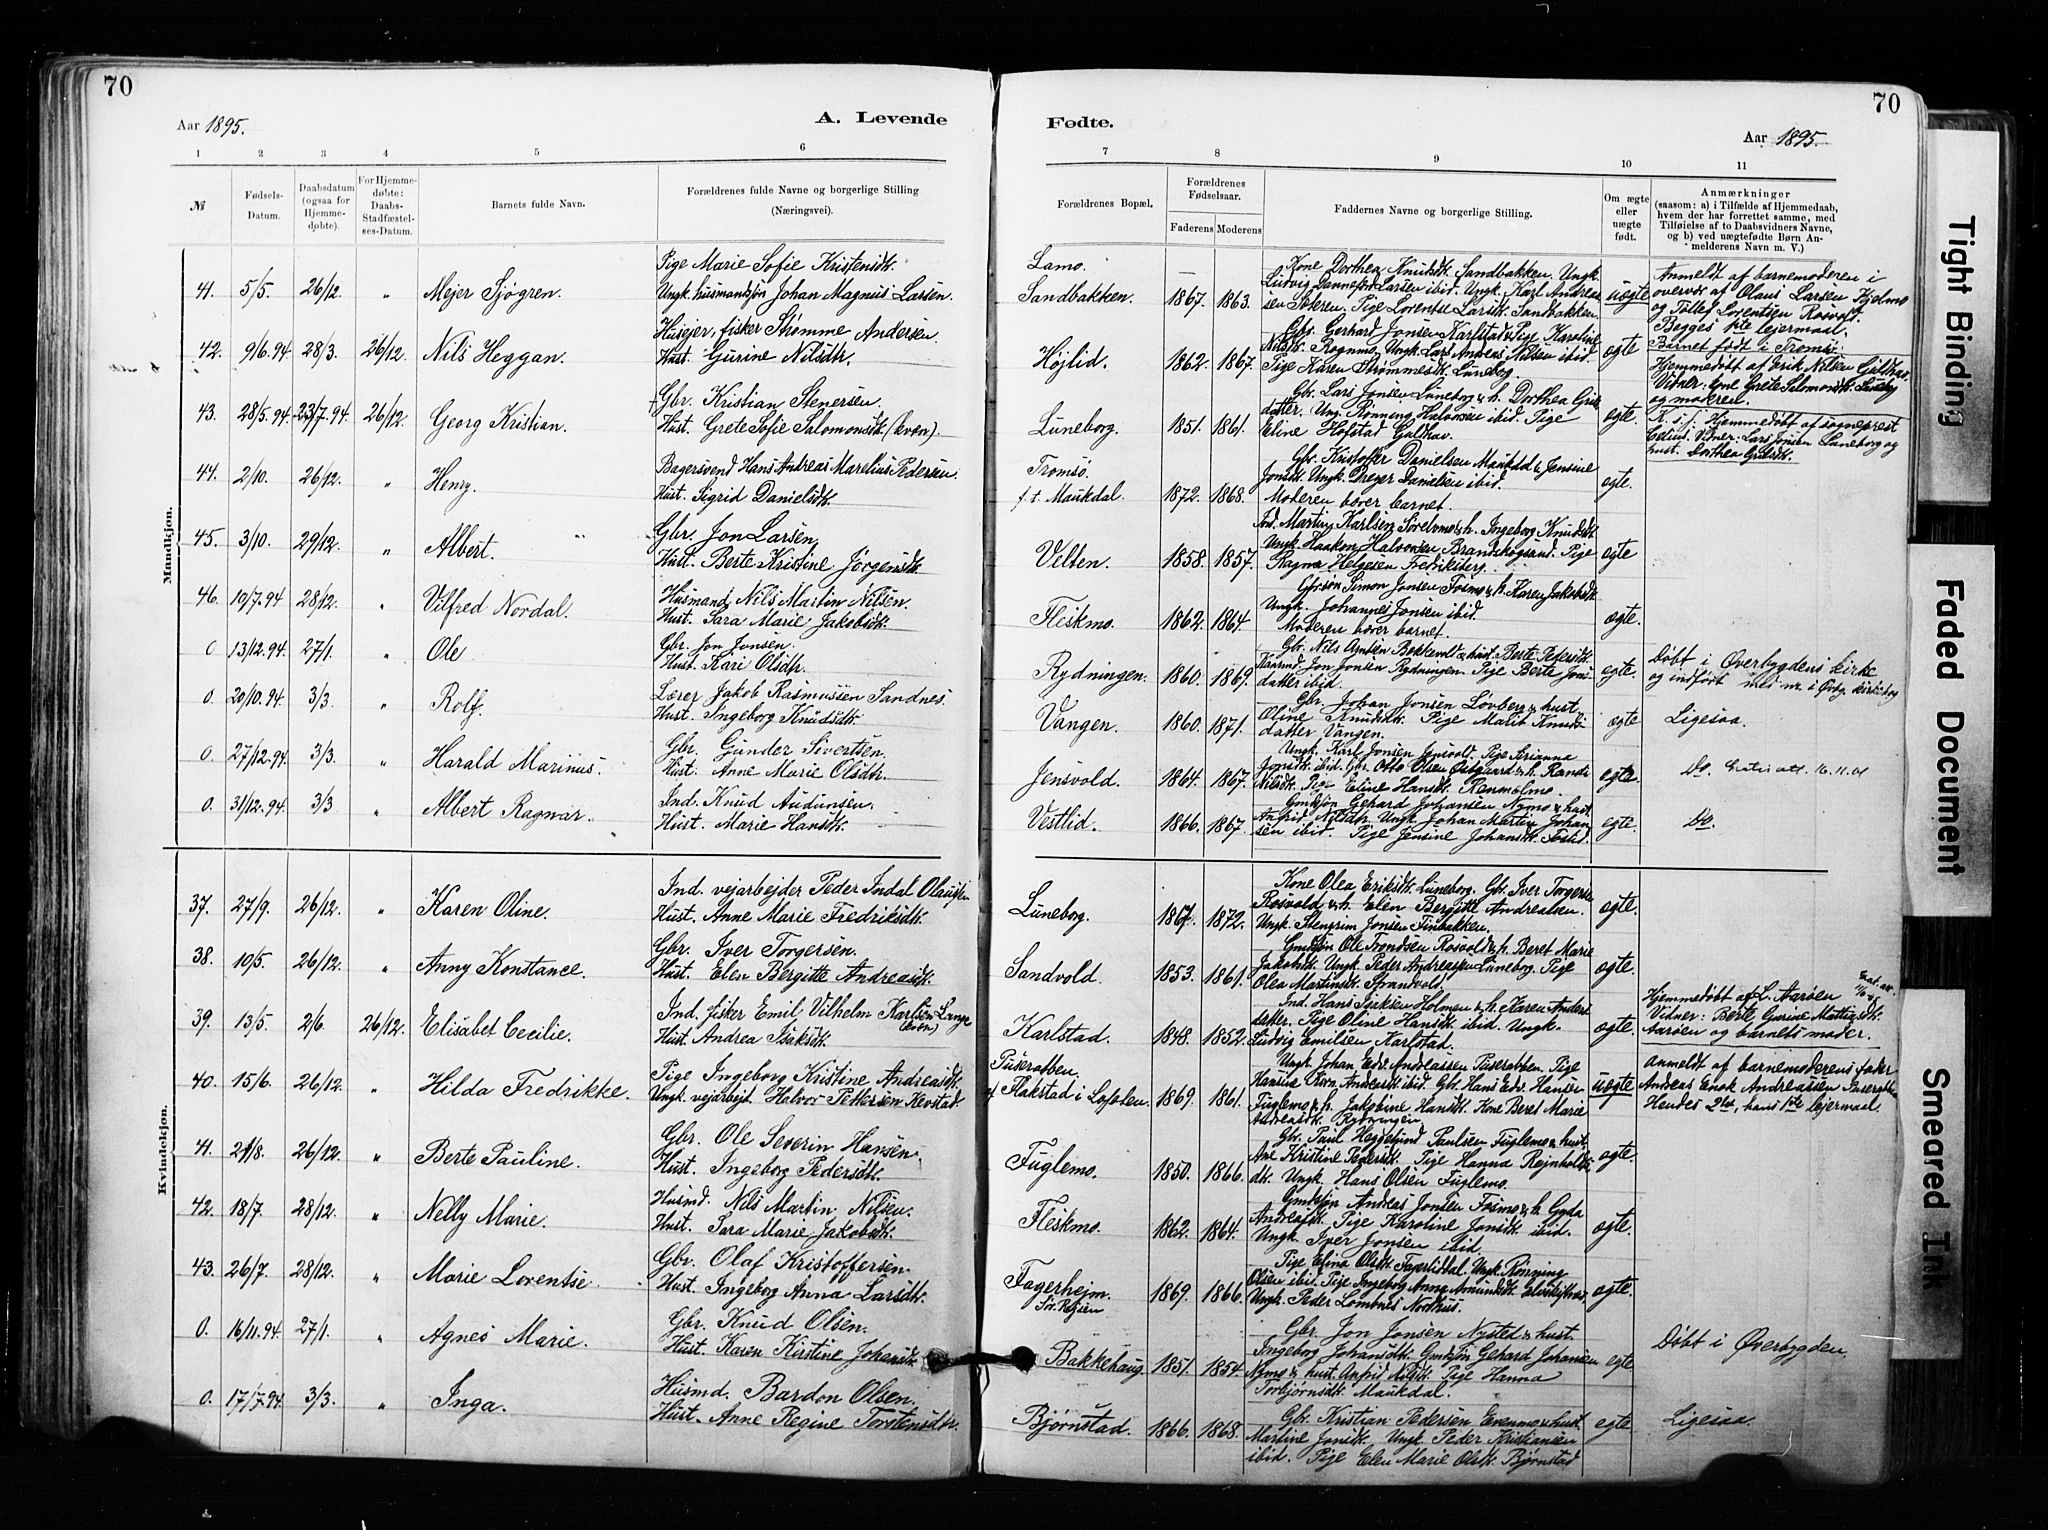 70
70
Aar 1895.
A. Levende
Fødte.
Aar 1895.
1 2 3 4 5 6
7 8 9 10 11
№
Fødsels-Datum.
Daabsdatum (ogsaa for Hjemmedøbte).
For Hjemmedøbte: Daabs-Stadfæstelses-Datum.
Barnets fulde Navn.
Forældrenes fulde Navne og borgerlige Stilling (Næringsvei).
Forældrenes Bopæl.
Forældrenes Fødselsaar.
Faderens Moderens
Faddernes Navne og borgerlige Stilling.
Om ægte eller uægte født.
Anmærkninger
(saasom: a) i Tilfælde af Hjemmedaab,
hvem der har forrettet samme, med
Tilføielse af to Daabsvidners Navne,
og b) ved uægtefødte Børn Anmelderens Navn m. V.)
Mandkjøn.
Pige Marie Sofie Kristensdtr.
41. 5/5. 26/12. " Mejer Sjøgren. Ungk. husmandssøn Johan Magnus Larsen.
Lamo.
Sandbakken. 1867. 1863.
Kone Dorthea Knudsdtr. Sandbakken. Ungk.
Ludvig Danneford Larsen ibid. Ungk. Karl Andreas
Pige Lorentse Larsdtr. Sandbakken.
uægte
Anmeldt af barnemoderen i
overvær af Olaus Larsen Hjelmo
og Tollef Lorentsen Rosvold.
Begges 1ste lejermaal.
Barnet født i Tromsø.
Husejer, fisker Strømme Andersen
42. 9/6.94. 28/3. 26/12. Nils Heggan. Hust. Gurine Nilsdtr.
Højlid. 1862. 1867.
Gbr. Gerhard Jonsen Karlstad. Pige Karoline
Nilsdtr. Rognmo. Ungk. Lars Andreas Nilsen ibid.
Pige Karen Strømmesdtr. Luneborg.
ægte
Hjemmedøbt af Erik Nilsen Guldhav.
Vidner: Kone Grete Salomonsdtr. Luneborg
og moderen.
Gbr. Kristian Stenersen.
43. 28/5.94. 23/7.94 26/12. Georg Kristian. Hust. Grete Sofie Salomonsdtr. (kvæn).
Luneborg. 1851. 1861.
Gbr. Lars Jonsen Luneborg & h. Dorthea Guldsdatter. Ung. Rønning Halvorsen ibid. Pige
Eline Hofstad Guldhav.
ægte
Hjemmedøbt af sogneprest
Vidner: Lars Jonsen Luneborg og
hust. Dorthea Guldsdtr.
Bagersvend Hans Andreas Marelius Pedersen.
44. 2/10. 26/12. " Henry. Hust. Sigrid Danielsdtr.
Tromsø.
f.t. Maukdal. 1872. 1868.
Gbr. Kristoffer Danielsen Maukdal & Jensine
Jonsdtr. Ungk. Dreyer Danielsen ibid.
Moderen bærer barnet.
ægte.
Gbr. Jon Larsen,
45. 3/10. 29/12. " Albert. Hust. Berte Kristine Jørgensdtr.
Velten. 1858. 1857.
Ind. Martin Karlsen Sørelvmo & h. Ingeborg Knudsdtr.
Ungk. Haakon Halvorsen Brandskogsund. Pige
Ragna Helgesen Fredriksberg.
ægte
Husmand Nils Martin Nilsen.
46. 10/7.94 28/12. " Vilfred Nordal. Hust. Sara Marie Jakobsdtr.
Fleskmo. 1862. 1864.
Gbrsøn Simon Jonsen Fosmo & h. Karen Jakobsdtr.
Ungk. Johannes Jonsen ibid.
Moderen bærer barnet.
ægte.
Gbr. Jon Jonsen.
0 13/12.94. 27/1. " Ole Hust. Kari Olsdtr.
Rydningen. 1860. 1869.
Gbr. Nils Amtsen Bekkevolt & hust. Berte Pedersdtr.
Jon Jonsen Rydningen. Pige Berte Jonsdatter ibid.
ægte
Døbt i Øverbygdens kirke
og indført med nr. i Øvbg. kirkebog
Lærer Jakob Rasmussen Sandnes
0. 20/10.94. 3/3. " Rolf. Hust. Ingeborg Knudsdtr.
Vangen. 1860. 1871.
Gbr. Johan Jonsen Løvberg & hust.
Oline Knudsdtr. Pige Marit Knudsdatter Vangen.
ægte
Ligesaa.
Gbr. Gunder Sivertsen.
0. 27/12.94. 3/3. " Harald Marinus. Hust. Anne Marie Olsdtr.
Jensvold. 1864. 1867.
Ungk. Karl Jonsen Jensvold. Pige Serianne
Jonsdtr. ibid. Gbr. Otto Olsen Østgaard & h. Randi
Nilsdtr. Pige Eline Hansdtr. Renmolmo.
ægte
Do. Gratis att. 16.11.01
Ind. Knud Audunsen.
0. 31/12.94. 3/3 " Albert Ragnar. Hust. Marie Hansdtr.
Vestlid. 1866. 1867.
Gmdssøn Gehard Johansen Nymo & hust.
Anfrid Nilsdtr. Ungk. Johan Martin Johansen ibid. Pige Jensine Johansdtr. Foslid.
ægte.
Do.
Kvindekjøn.
Ind. vejarbejder Peder Indal Olaussen
37. 27/9. 26/12. " Karen Oline. Hust. Anne Marie Fredriksdtr.
Luneborg. 1867. 1872.
Kone Olea Eriksdtr. Luneborg. Gbr. Iver Torgersen
Rosvold & h. Elen Bergitte Andreasen.
Ungk. Stengrim Jonsen Finbakken.
ægte.
Gbr. Iver Torgersen.
38. 10/5. 26/12. " Anny Konstance. Hust. Elen Bergitte Andreasdtr.
Sandvold. 1853. 1861.
Gmdssøn Ole Trondsen Rosvold & h. Beret Marie
Jakobsdtr. Ungk. Peder Andreassen Luneborg. Pige
Olea Martinsdtr. Strandvold.
ægte.
Ind. fisker Emil Vilhelm Karlsen Lange (kvæn)
39. 13/5. 2/6. 26/12. Elisabet Cecilie. Hust. Andrea Isaksdtr.
Karlstad. 1848. 1852.
Ind. Hans Isaksen Holmen & h. Karen Andersdatter. Pige Oline Hansdtr. ibid. Ungk.
Ludvig Emilsen Karlstad.
ægte.
Hjemmedøbt af L. Aarøen
Vidner: Berte Gurine Mattisdtr.
Aarøen og barnets moder.
Pige Ingeborg Kristine Andreasdtr.
40. 15/6. 26/12. " Hilda Fredrikke. Ungk. vejarbejd. Halvor Pettersen Hevstad.
Puseratten.
Flakstad i Lofoten. 1869. 1861.
Ungk. Johan Edv. Andreassen Puseratten. Pige
Hansine Andreasdtr. ibid. Gbr. Hans Edv. Hansen
Fuglemo & h. Jakobine Hansdtr. Kone Beret Marie
Andreasdtr. Rydningen.
uægte
anmeldt af barnemoderens fader
Andreas Enok Andreassen Puseratten
Hendes 2det, hans 1ste lejermaal.
Gbr. Ole Severin Hansen.
41. 21/8. 26/12. " Berte Pauline. Hust. Ingeborg Pedersdtr.
Fuglemo. 1850. 1866.
Gbr. Paul Heggelund Paulsen Fuglemo & hust.
Ane Kristine Pedersdtr. Pige Hanna Rejnholdsdtr. Ungk. Hans Olsen Fuglemo.
ægte.
Husmd. Nils Martin Nilsen.
42. 18/7. 28/12. " Nelly Marie. Hust. Sara Marie Jakobsdtr.
Fleskmo. 1862. 1864.
Gmdssøn Andreas Jonsen Fosmo & h. Gyda
Andreasdtr. Pige Karoline Jonsdtr. ibid.
Ungk. Iver Jonsen ibid.
ægte.
Gbr. Olaf Kristoffersen.
43. 26/7. 28/12. " Marie Lorentse. Hust. Ingeborg Anna Larsdtr.
Fagerhejm.
Sør. Rejsen 1869. 1866.
Pige Elina Olsdtr. Fagerliddal. Ungk. Rønning
Olsen ibid. Pige Ingeborg Anna Amundsdtr.
Ungk. Peder Lombnes Nordhus.
ægte.
Gbr. Knud Olsen.
0. 16/11.94. 27/1. " Agnes Marie. Hust. Karen Kirstine Johansdtr.
Bakkehaug. 1851. 1854.
Gbr. Jon Jonsen Nysted & hust.
Ingeborg Johansdtr. Gmdssøn Gehard Johansen
Nymo & hust. Anfrid Nilsdtr. Pige Hanna
Torbjørnsdtr. Maukdal.
ægte
Døbt i Øverbygden.
Husmd. Bardon Olsen.
0. 17/7.94. 3/3. " Inga. Hust. Anne Regine Torstensdtr.
Bjørnstad. 1866. 1868.
Gbr. Kristian Pedersen Evenmo & hust.
Martine Jonsdtr. Ungk. Peder Kristiansen
ibid. Pige Elen Marie Olsdtr. Bjørnstad
ægte
Ligesaa.
Tight Binding
Faded Document
Smeared Ink